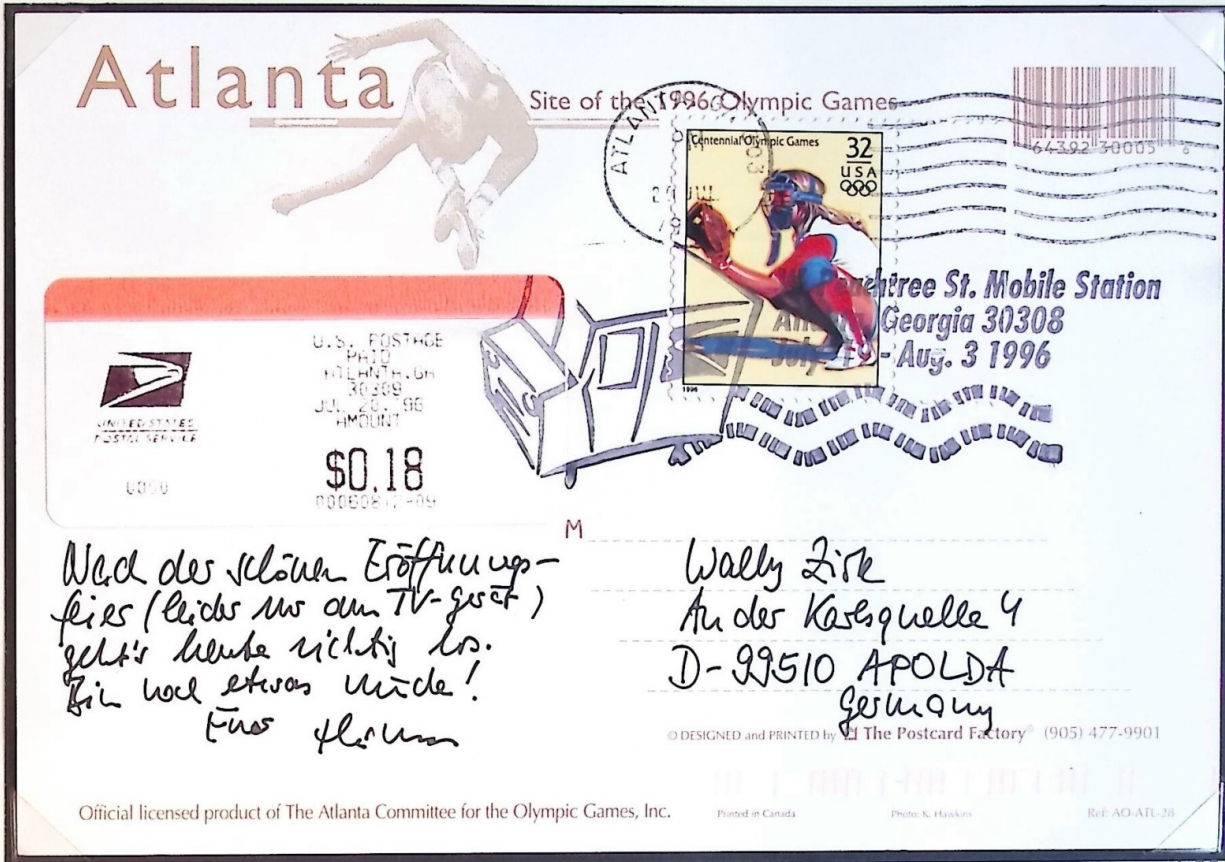 Atlanta
Site of the 1996 Olympic Games
64392 30005 6
ATLANTA
Centennial Olympic Games
32
USA
1996
St. Mobile Station
Georgia 30308
- Aug. 3 1996
U.S. POSTAGE
PAID
ATLANTA,GA
30309
JUL 20, 96
AMOUNT
$0.18
UNITED STATES
POSTAL SERVICE
M
Nach der schönen Eröffnungs-
feier (leider nur am TV-Gerät)
geht's heute richtig los.
Bin noch etwas müde!
Euer
Wally Zirk
An der Karlsquelle 4
D-99510 APOLDA
Germany
© DESIGNED and PRINTED by The Postcard Factory® (905) 477-9901
Official licensed product of The Atlanta Committee for the Olympic Games, Inc.
Printed in Canada
Photo: K. Hawkins
Ref: AO-ATL-28